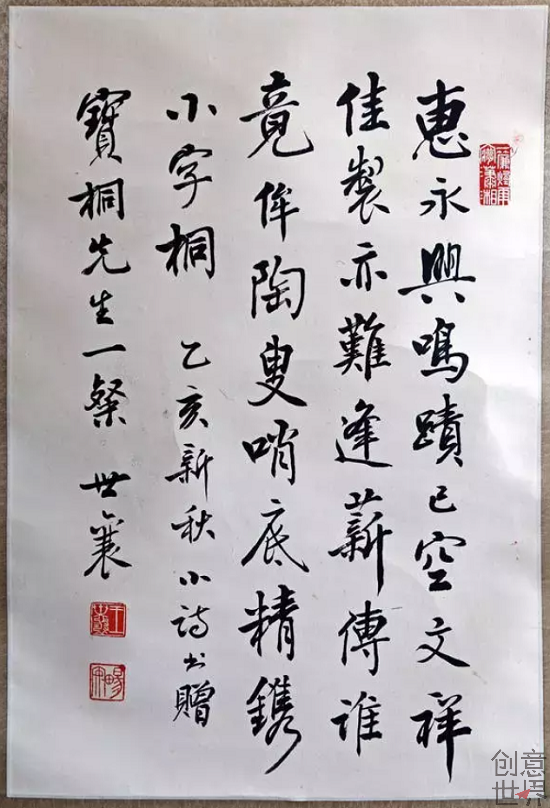 惠永興鳴蹟已空文祥
佳製亦難逢薪傳誰
竟侔陶叟哨底精鐫
小字桐 乙亥新秋小詩書贈
寶桐先生一粲 世襄
创意
世界